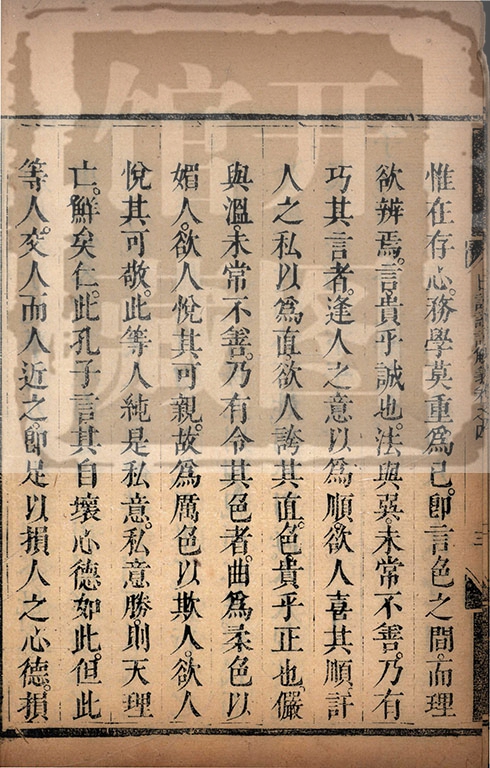 惟在存心。務學莫重爲已。卽言色之間。而理
欲辨焉。言貴乎誠也。法與巽。未常不善。乃有
巧其言者。逢人之意以爲順。欲人喜其順。訐
人之私以爲直。欲人誇其直。色貴乎正也。儼
與溫。未常不善。乃有令其色者。曲爲柔色以
媚人。欲人悅其可親。故爲厲色以欺人。欲人
悅其可敬。此等人純是私意。私意勝。則天理
亡。鮮矣仁。此孔子言其自壞心德如此。但此
等人。交人而人近之。卽足以損人之心德。損